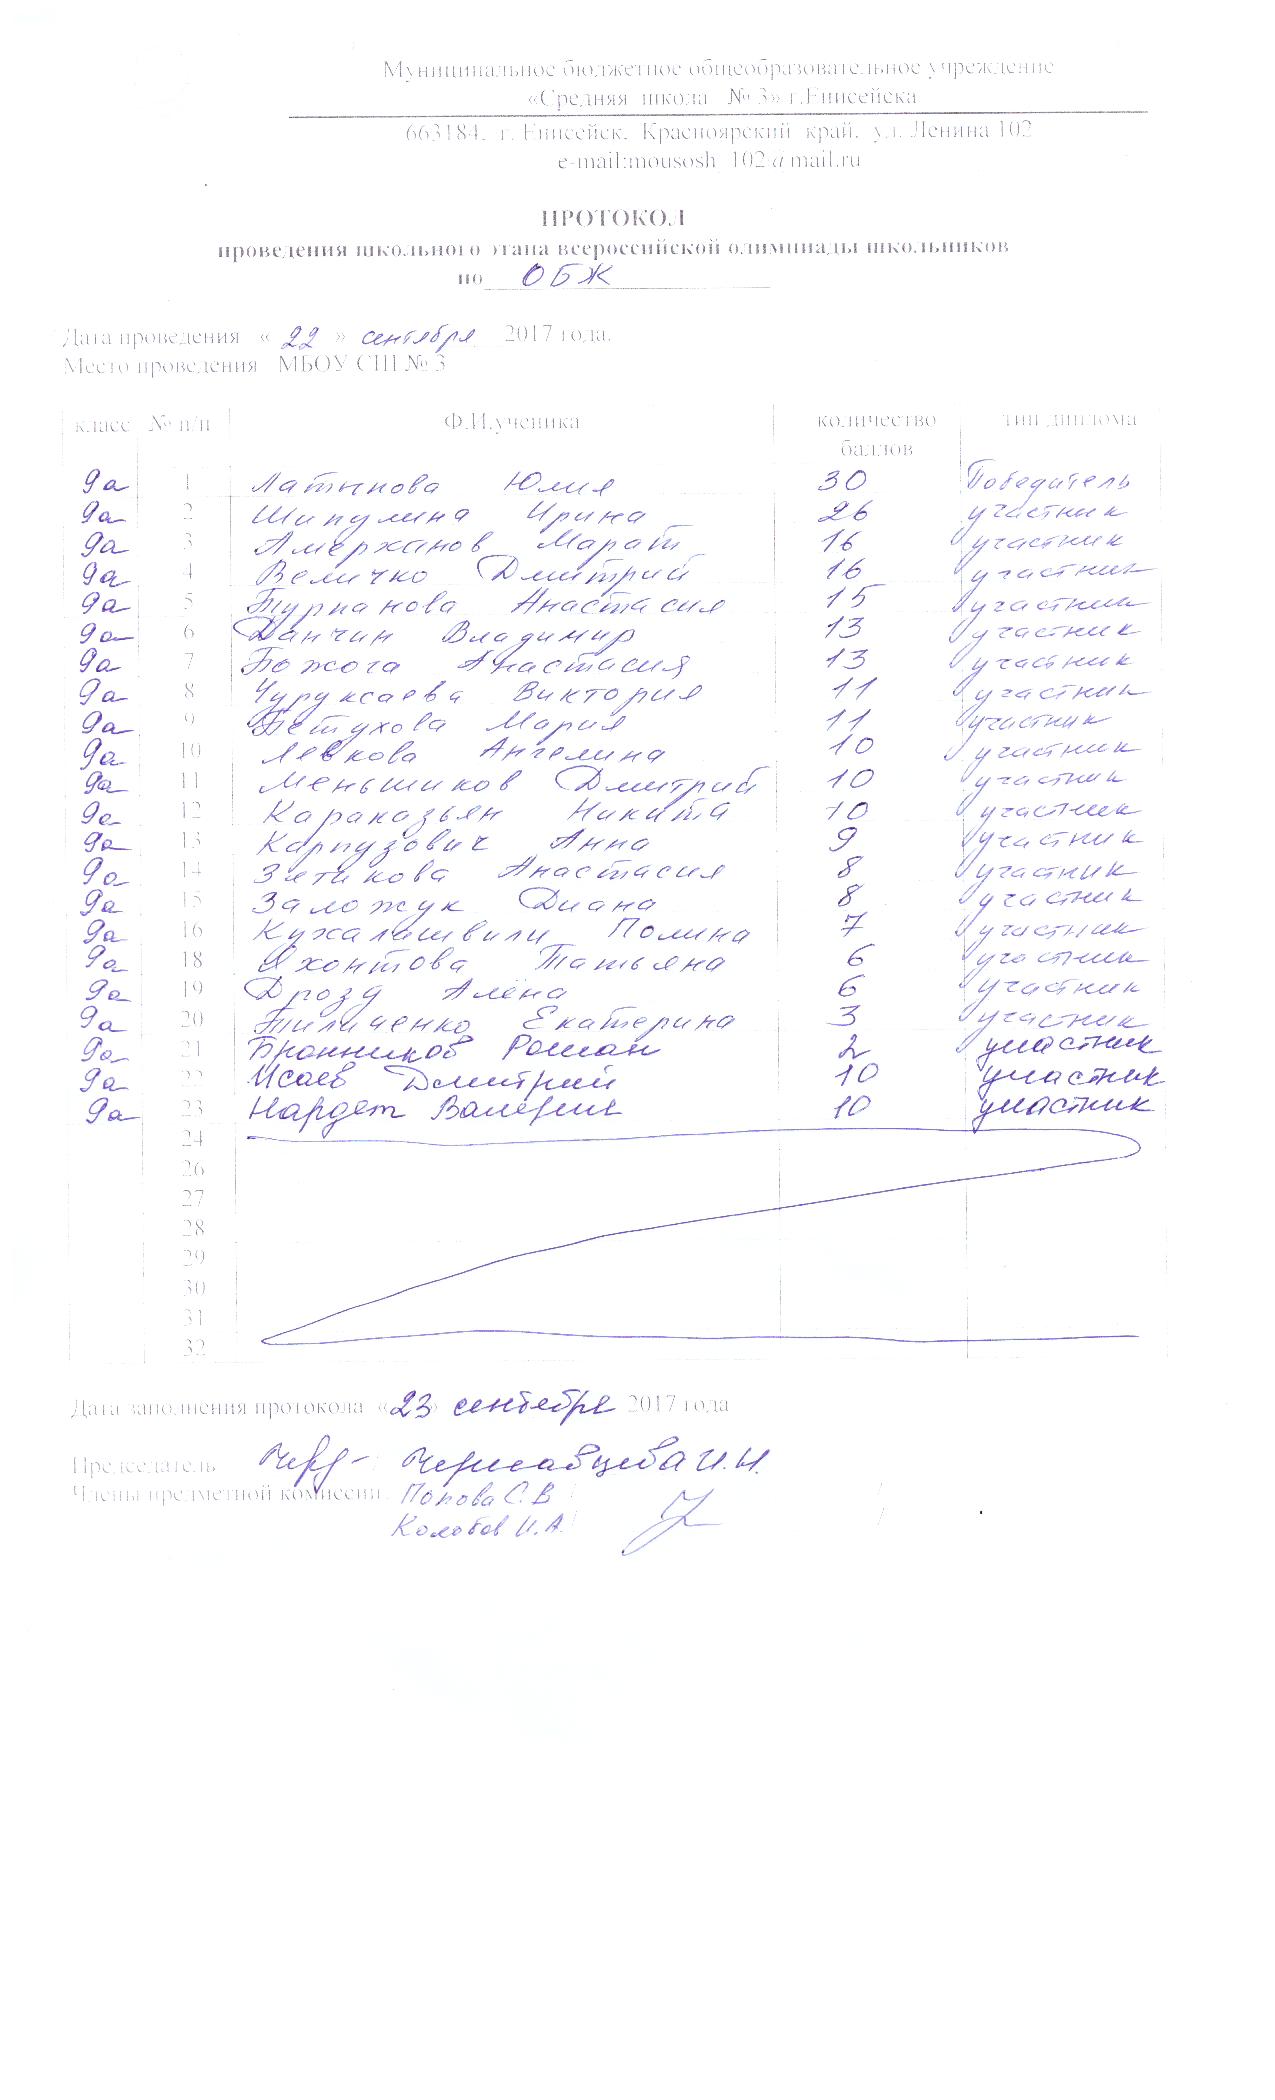 Муниципальное бюджетное общеобразовательное учреждение
«Средняя школа № 3» г.Енисейска
663184, г. Енисейск, Красноярский край, ул. Ленина 102
e-mail:mousosh_102@mail.ru
ПРОТОКОЛ
проведения школьного этапа всероссийской олимпиады школьников
по ОБЖ
Дата проведения « 22 » сентября 2017 года.
Место проведения МБОУ СШ № 3
класс № п/п Ф.И.ученика количество баллов тип диплома
9а 1 Латыпова Юлия 30 Победитель
9а 2 Шипулина Ирина 26 участник
9а 3 Амержанов Марат 16 участник
9а 4 Величко Дмитрий 16 участник
9а 5 Турпанова Анастасия 15 участник
9а 6 Данчин Владимир 13 участник
9а 7 Божога Анастасия 13 участник
9а 8 Чуруксаева Виктория 11 участник
9а 9 Петухова Мария 11 участник
9а 10 Левкова Ангелина 10 участник
9а 11 Меньшиков Дмитрий 10 участник
9а 12 Караказьян Никита 10 участник
9а 13 Карпузович Анна 9 участник
9а 14 Зетикова Анастасия 8 участник
9а 15 Заложук Диана 8 участник
9а 16 Кухалашвили Полина 7 участник
9а 18 Яхонтова Татьяна 6 участник
9а 19 Дрозд Алёна 6 участник
9а 20 Тиличенко Екатерина 3 участник
9а 21 Бронников Роман 2 участник
9а 22 Исаев Дмитрий 10 участник
9а 23 Нардет Валерия 10 участник
24
26
27
28
29
30
31
32
Дата заполнения протокола «23» сентября 2017 года
Председатель Чернавцева И.Н.
Члены предметной комиссии: Попова С.В
Колобов И.А.